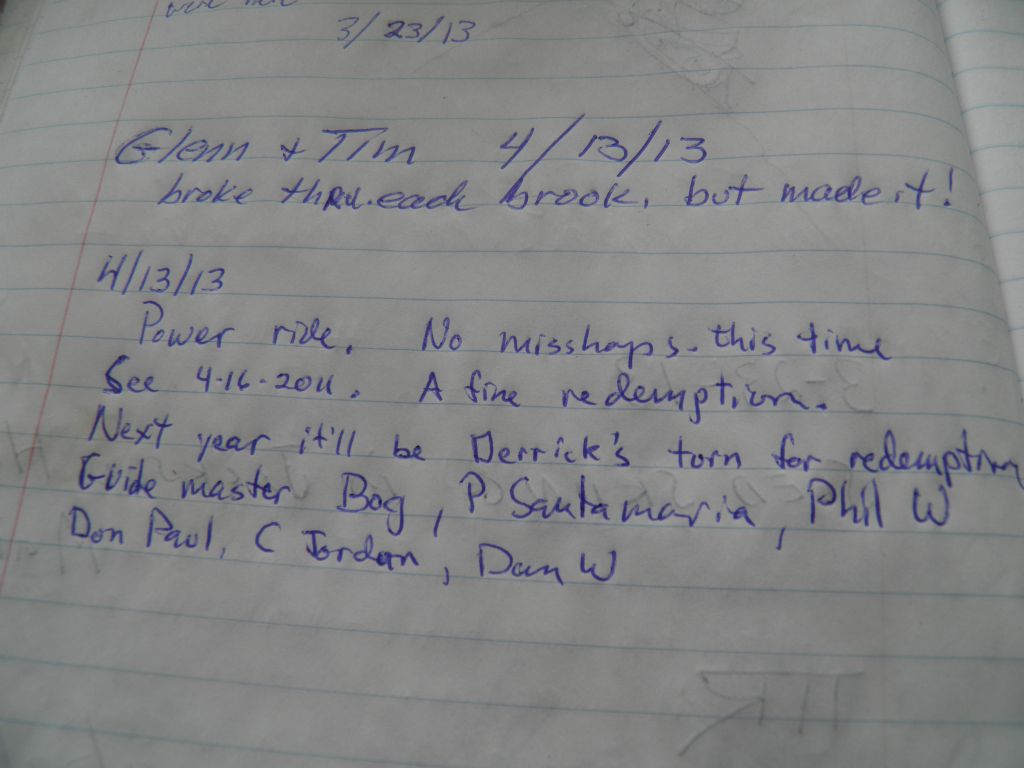 3/23/13
Glenn & Tim 4/13/13
broke thru each brook, but made it!
4/13/13
Power ride. No misshaps. this time
See 4-16-2011. A fine redemption.
Next year it'll be Derrick's torn for redemption
Guide master Bog, P Santamaria, Phil W
Don Paul, C Jordan, Dan W